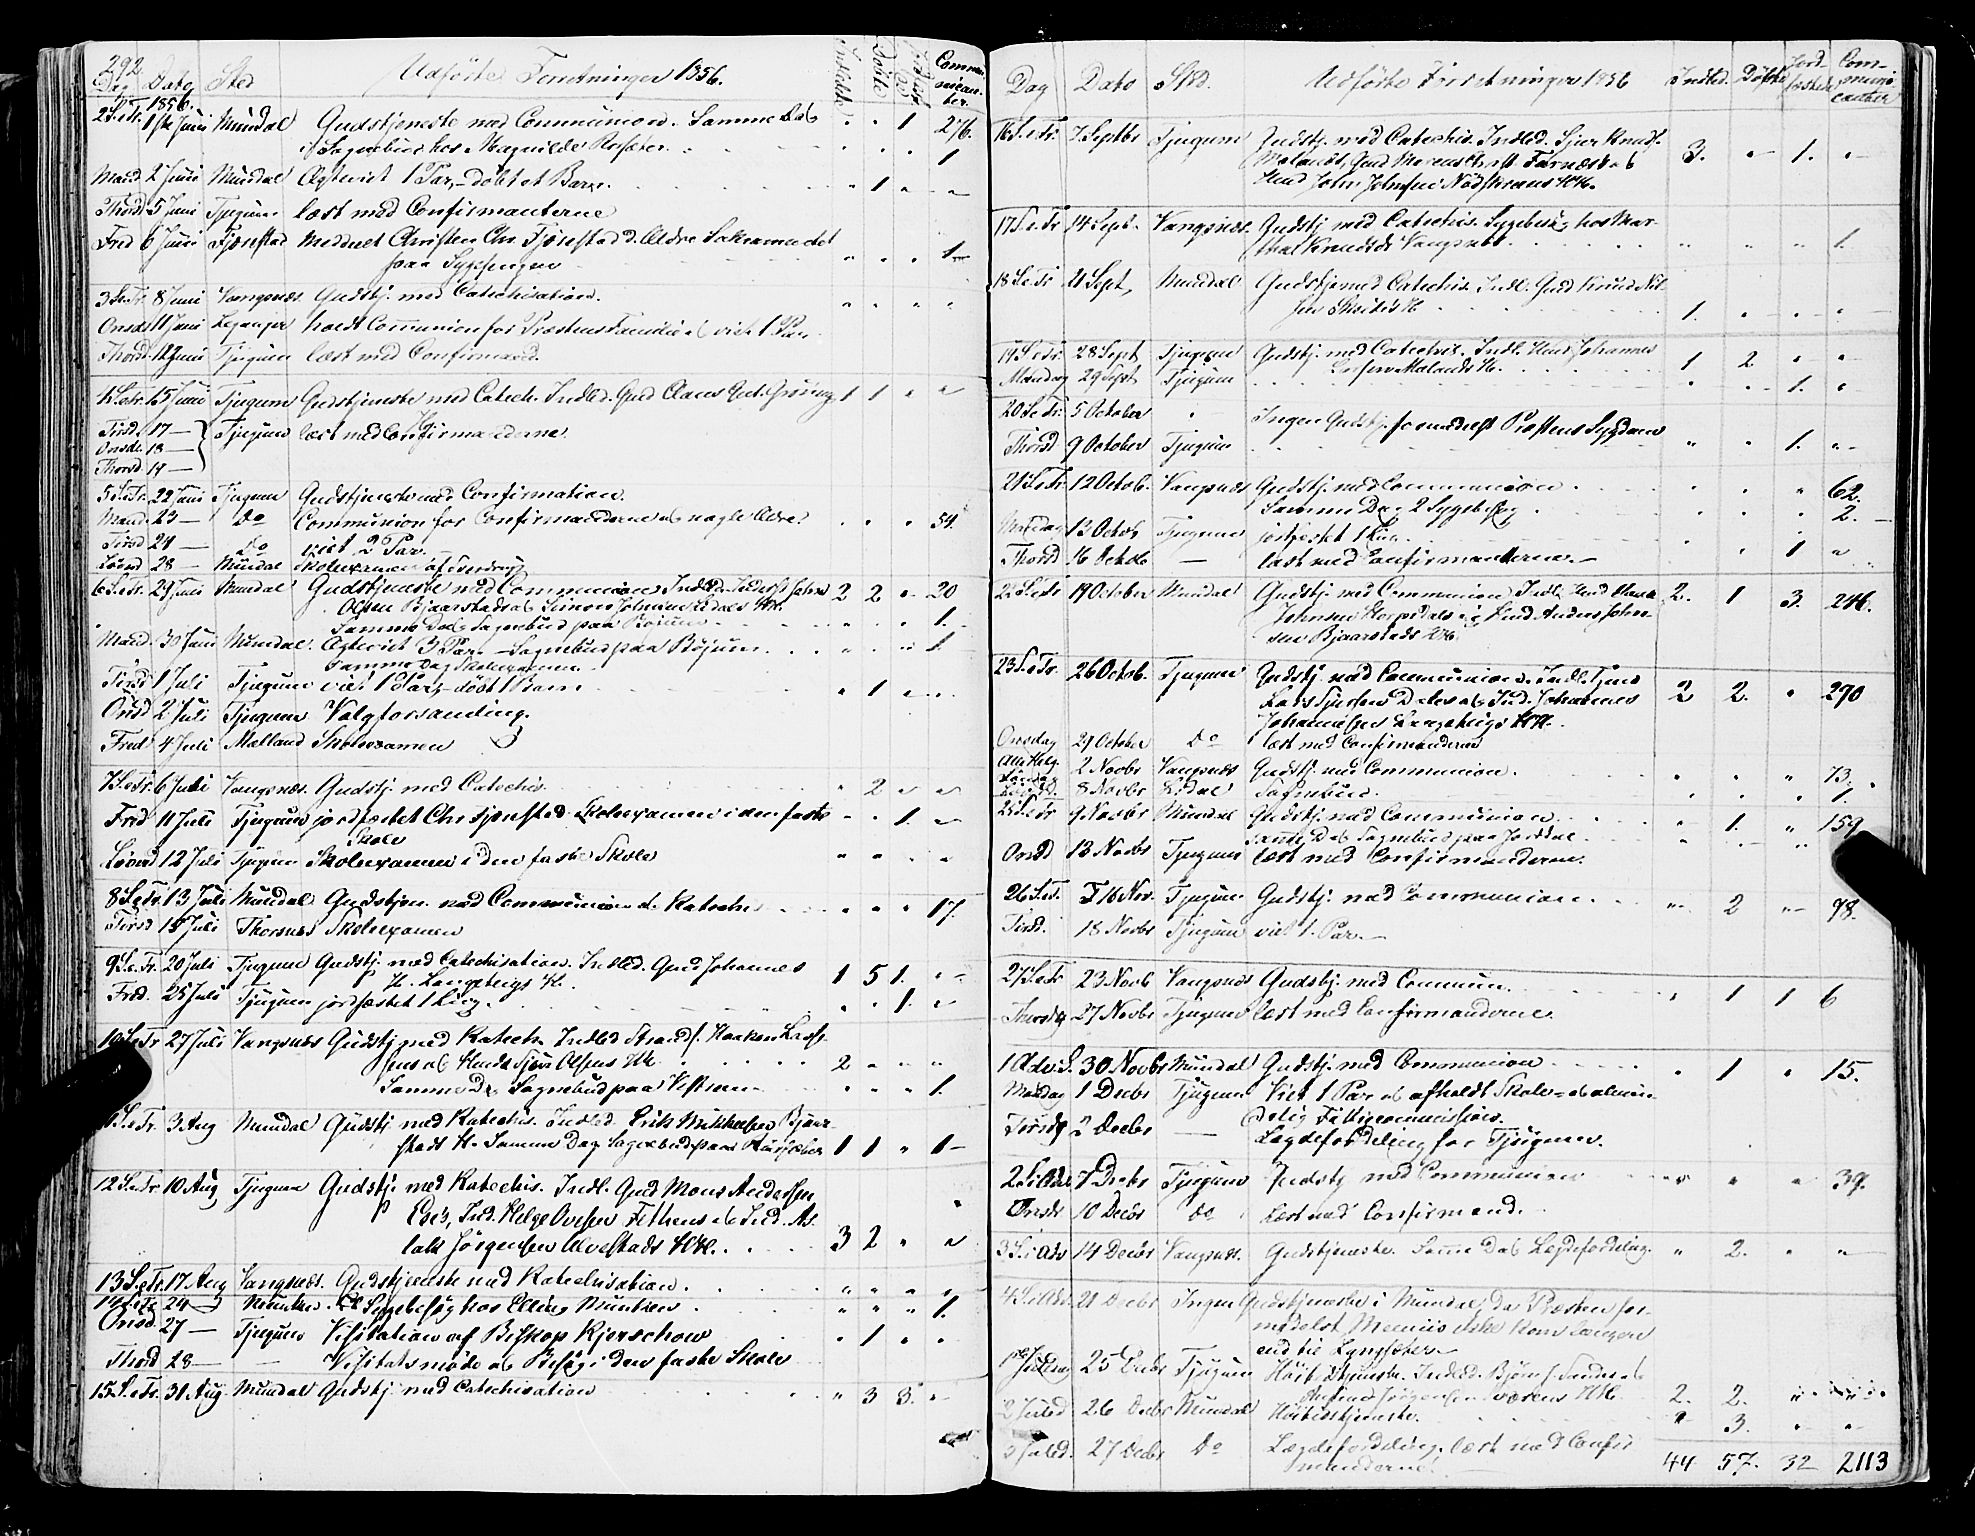 292
Dag Dato Sted Udførte Forretninger 1856. Indled. Døbte Communicanter.
1856.
2 S.e.Tr. 1ste Juni Mundal Gudstjeneste med Communion. Samme Dag " " 1 276.
Sognebud hos 1
Mand. 2 Juni Mundal Ægteviet 1 Par, døbt et Barn. " 1 " "
Thorsd. 5 Juni Tjugum læst med Confirmanterne
Fred 6 Juni Tjønstad meddeelt Christen Chr. Tjønstad d. Ældre Sakramentet
paa Sygesengen " " " 1
3 S.e.Tr. 8 Juni Vangsnæs Gudstj. med Catechisation. " " " "
Onsd. 11 Juni Leganger holdt Communion for Præstens Familie og viet 1 Par
Thorsd. 12 Juni Tjugum læst med Confirmand.
4 S.e.Tr. 15 Juni Tjugum Gudstjeneste med Catech. Indled. Gmd Claus 1 1 " "
Tirsd. 17 — Tjugum læst med Confirmanderne.
Onsd. 18 —
Thorsd. 19 —
5 S.e.Tr. 22 Juni Tjugum Gudstjeneste med Confirmation.
Mand. 23 — Do Communion for Confirmanderne og nogle Ældre. " " " 54.
Tirsd 24 — Do viet 2 Par.
Løverd 28 — Mundal Skolexamen af
6 S.e.Tr. 29 Juni Mundal Gudstjeneste med Communion Indled. 2 2 " 20
Olsen Bjaarstads og Simon Johnsen
Samme Dag Sognebud paa Bøjum 1.
Mand. 30 Juni Mundal. Ægteviet 3 Par. Sognebud paa Bøjum 1
samme Dag Skolexamen.
Tirsd 1 Juli Tjugum viet 1 Par, døbt 1 Barn " 1 " "
Onsd 2 Juli Tjugum Valgforsamling.
Fred 4 Juli Mælland Skolexamen
7 S.e.Tr. 6 Juli Vangsnæs. Gudstj. med Catechis. " 2 " "
Fred 11 Juli Tjugum jordfæstet Chr Tjønstad. Skolexamen i den faste " " 1. "
Skole
Løverd 12 Juli Tjugum Skolexamen i den faste Skole " " " "
8 S.e.Tr. 13 Juli Mundal Gudstjen. med Communion & Katechis " " " 17.
Tirsd 15 Juli Thorsnes Skolexamen
9 S.e.Tr. 20 Juli Tjugum Gudstj. med Catechisation. Indled. Gmd Johannes 1 5 1. "
H. Langeteigs H.
Fred. 25 Juli Tjugum jordfæstet 1 Liig. " " 1. "
10 S.e.Tr 27 Juli Vangsnæs Gudstj med Katech. Indled Strands. Haaken
og Hmds Sjur Olsens HH. 2 " " "
Samme Dag Sognebud paa " " " 1.
S.e.Tr. 3 Aug Mundal Gudstj med Katechis. Indled. Erik Mikkelsen Bjaar-
stads H. Samme Dag Sognebud paa 1 1 " 1
12 S.e.Tr. 10 Aug Tjugum Gudstj. med Katechis. Indl. Gmd Mons Andersen
Eses, Ind. Helge Ovesen Fethens og Ind. As-
lak Jørgensen Alvestads HH. 3 2 " "
13 S.e.Tr. 17 Aug Vangsnæs. Gudstjeneste med Katechisation. " " " "
14 S.e.Tr 24 — Sygebesøg hos " " " 1.
Onsd. 27 — Tjugum Visitation af Biskop Kjerschow " 1 " "
Thord 28 — — Visitatsmøde og Besøg i den faste Skole
15 S.e.Tr. 31 Aug. Mundal Gudstj. med Catechisation " 3 3. "
Dag Dato Sted. Udførte Forretninger 1856 Indled. Døbte Jordfæstede Communicanter
16 S.e.Tr. 7 Septbr Tjugum Gudstj. med Catechis. Indled. Sjur Knuds.
Mælands, Gmd Mons Farnæs og 3. " 1. "
Hmd John Johnsens Nødstrands HH.
17 S.e.Tr 14 Sept. Vangsnæs. Gudstj med Catechis. Sygebesøg hos Mar-
Knudsd. Vangsnæs " " " 1.
18 S.e.Tr 21 Sept, Mundal Gudstj. med Catechis. Indl. Gmd Knud Nil-
sen H 1. " " "
19 S.e.Tr. 28 Sept Tjugum Gudstj. med Catechis. Indl. Hmd Johannes 1 2 " "
Mælands H.
Mandag 29 Sept Tjugum " " 1. "
20 S.e.Tr. 5 October " Ingen Gudstj. formedelst Præstens Sygdom
Thorsd 9 October Tjugum " " 1. "
21 S.e.Tr 12 Octob. Vangsnæs Gudstj. med Communion " " " 62.
Samme Dag 2 Sygebesøg 2.
Mandag 13 Octob Tjugum jordfæstet 1 Liig
Thorsd 16 Octob — læst med Confirmanderne. " " 1 "
22 S.e.Tr 19 October Mundal Gudstj. med Communion Indl. Hmd 2. 1 3. 246.
Johnsen og Hmd Anders John-
sen Bjaarstads HH.
23 S.e.Tr. 26 Octob. Tjugum Gudstj. med Communion. Indl.
Lars og Ind. Johannes 2 2. " 270
Johannesen Langeteigs HH.
Onsdag 29 October Do læst med Confirmanderne
Alle Helg. Søndag 2 Novbr Vangsnæs Gudstj. med Communion. " " " 73.
8 Novbr Sognebud. " " " 1.
25 S.e.Tr 9 Novbr Mundal Gudstj. med Communion " 1. " 159
Samme Dag Sognebud paa
Onsd 12 Novbr Tjugum læst med Confirmanderne.
26 S.e.T. 16 Nov. Tjugum Gudstj. med Communion. " 2 " 98.
Tirsd. 18 Novbr Tjugum viet 1. Par.
27 S.e.Tr 23 Novb Vangsnæs Gudstj. med Commun. " 1 1 6
Thorsdg 27 Novbr Tjugum læst med Confirmanderne.
1 Adv. S. 30 Novbr Mundal Gudstj. med Communion " 1 " 15.
Mandag 1 Decbr Tjugum Viet 1 Par og afholdt Skole- og almin-
delig Fattigcommission.
Tirsdg 2 Decbr — Lægdefordeling for Tjugum.
2 S.i Adv. 7 Decbr Tjugum Gudstj med Communion " " " 39.
Onsd. 10 Decbr Do Læst med Confirmand.
3 S.i Adv 14 Decbr Vangsnæs. Gudstjeneste. Samme Dag Lægdefordeling. " 2. " "
4 S.i Adv. 21 Decbr Ingen Gudstjeneste i Mundal, da Præsten for-
medelst ikke kom længere
end til
1ste Juledag 25 Decbr Tjugum Høitidstjeneste. Indled. Bjørn
HH. 2. 2. " "
2 Juled 26 Decbr Mundal Høitidstjeneste. " 3. " "
3 Juled. 27 Decbr Do Lægdefordeling, læst med Confir-
manderne.
44 57. 32 2113